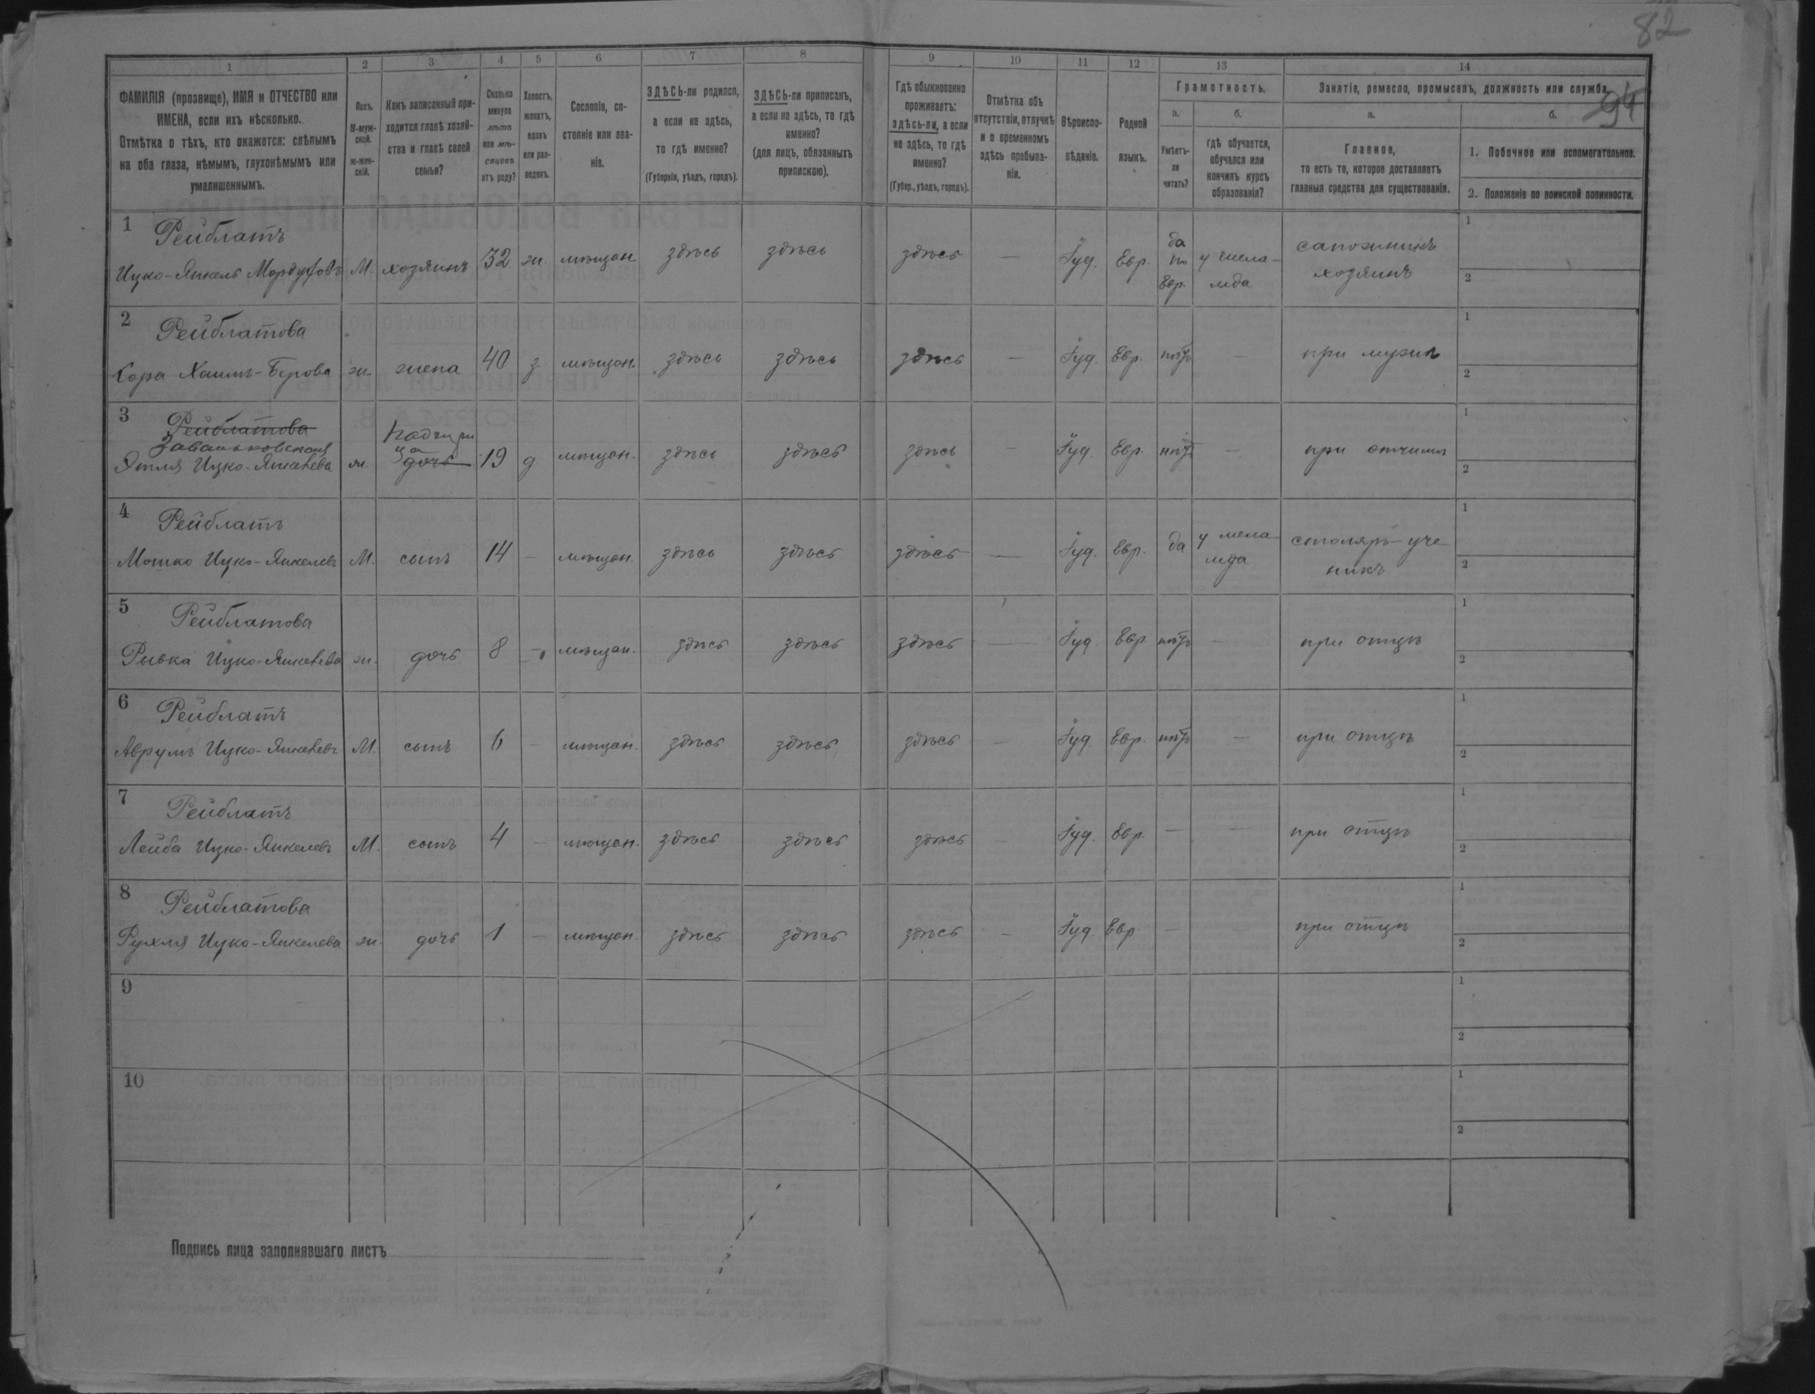 82
94
1
2
3
4
5
6
7
8
9
10
11
12
13
14
ФАМИЛІЯ (прозвище), ИМЯ и ОТЧЕСТВО или
ИМЕНА, если ихъ нѣсколько.
Отмѣтка о тѣхъ, кто окажется: слѣпымъ
на оба глаза, нѣмымъ, глухонѣмымъ или
умалишеннымъ.
Полъ.
М-муж-
ской.
ж-жен-
скій.
Какъ записанный при-
ходится главѣ хозяй-
ства и главѣ своей
семьи?
Сколько
минуло
лѣтъ
или мѣ-
сяцевъ
отъ роду?
Холостъ,
женатъ,
вдовъ
или раз-
веденъ.
Сословіе, со-
стояніе или зва-
ніе.
ЗДѢСЬ-ли родился,
а если не здѣсь,
то гдѣ именно?
(Губернія, уѣздъ, городъ).
ЗДѢСЬ-ли приписанъ,
а если не здѣсь, то гдѣ
именно?
(для лицъ, обязанныхъ
припискою).
Гдѣ обыкновенно
проживаетъ:
здѣсь-ли, а если
не здѣсь, то гдѣ
именно?
(Губер., уѣздъ, городъ).
Отмѣтка объ
отсутствіи, отлучкѣ
и о временномъ
здѣсь пребыва-
ніи.
Вѣроиспо-
вѣданіе.
Родной
языкъ.
Грамотность.
а.
Умѣетъ-
ли
читать?
б.
гдѣ обучается,
обучался или
кончилъ курсъ
образованія?
Занятіе, ремесло, промыселъ, должность или служба.
а.
Главное,
то есть то, которое доставляетъ
главныя средства для существованія.
б.
1. Побочное или вспомогательное.
2. Положеніе по воинской повинности.
1 Рейблатъ
Ицко-Янкель Мордуховъ М. хозяинъ 32 ж мѣщан здѣсь здѣсь здѣсь — Іуд. Евр. да по Евр. у мела-
мда сапожникъ
хозяинъ 1
2
2 Рейблатова
Хаимъ-Берова ж. жена 40 з. мѣщан. здѣсь здѣсь здѣсь — Іуд. Евр. нѣтъ — при мужѣ 1
2
3 Рейблатова
Ицко-Янкелева ж. дочь 19 д мѣщан. здѣсь здѣсь здѣсь — Іуд. Евр. нѣтъ — при отчимѣ 1
2
4 Рейблатъ
Мошко Ицко-Янкелевъ М. сынъ 14 — мѣщан. здѣсь здѣсь здѣсь — Іуд. Евр. да у мела
мда столяръ уче
никъ 1
2
5 Рейблатова
Ривка Ицко-Янкелева ж. дочь 8 — мѣщан. здѣсь здѣсь здѣсь — Іуд. Евр нѣтъ — при отцѣ 1
2
6 Рейблатъ
Аврумъ Ицко-Янкелевъ М. сынъ 6 — мѣщан. здѣсь здѣсь здѣсь — Іуд Евр. нѣтъ — при отцѣ 1
2
7 Рейблатъ
Лейба Ицко-Янкелевъ М. сынъ 4 — мѣщан. здѣсь здѣсь здѣсь — Іуд. Евр. — — при отцѣ 1
2
8 Рейблатова
Рухля Ицко-Янкелева ж. дочь 1 — мѣщан здѣсь здѣсь здѣсь — Іуд. Евр — — при отцѣ 1
2
9 1
2
10 1
2
Подпись лица заполнявшаго листъ